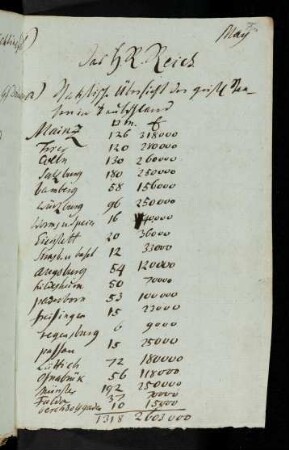 May
Das H. R. Reich
Statistische Übersicht der geistl.
in Deutschland
Mainz 126 318000
Trier 120 280000
Coelln 130 260000
Salzburg 180 250000
Bamberg 58 156000
Würzburg 96 250000
Worms u Speier 16
20 36000
Straßb u Basel 12 33000
Augsburg 54 120000
Hildesheim 50 70000
paderborn 53 100000
freisingen 15 23000
regensburg 6 9000
passau 15 25000
Lüttich 72 180000
Osnabrük 56 118000
Münster 192 250000
Fulda 37
Berchtolsgaden 10 15000
1318 2603000